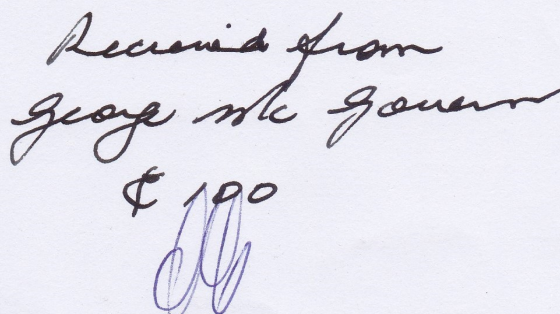 Received from
George Mc Govern
€ 100